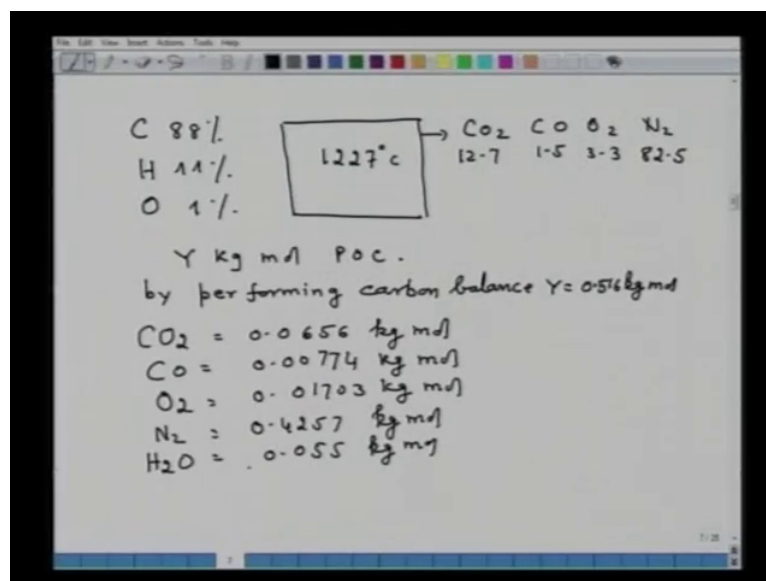 File Edit View Insert Actions Tools Help
C 88%
H 11%
O 1%.
1227°C
CO2 CO O2 N2
12.7 1.5 3.3 82.5
Y kg mol POC.
by performing carbon balance Y = 0.516 kg mol
CO2 = 0.0656 kg mol
CO = 0.00774 kg mol
O2 = 0.01703 kg mol
N2 = 0.4257 kg mol
H2O = 0.055 kg mol
7